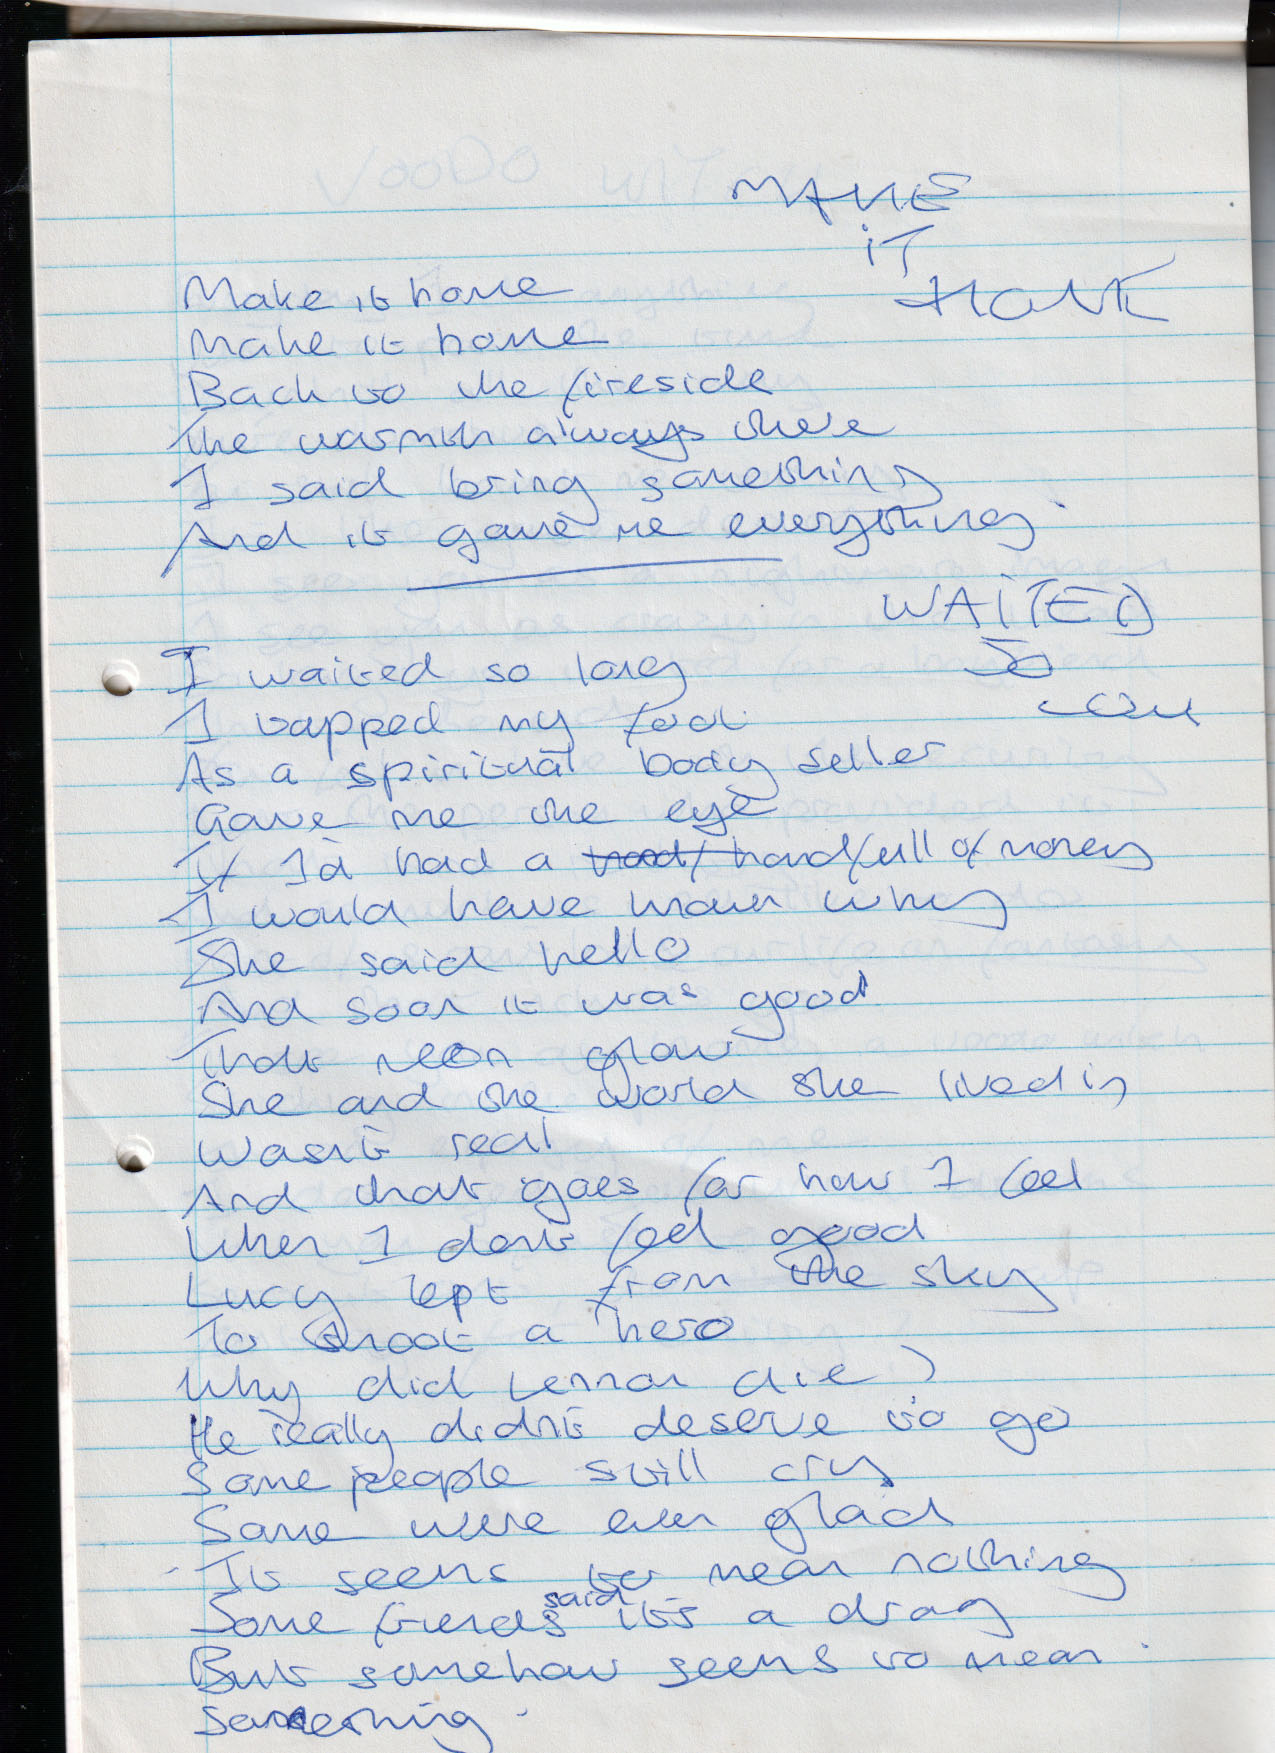 MAKE
IT
HOME
Make it home
Make it home
Back to the fireside
The warmth always there
I said bring something
And it gave me everything.
WAITED
SO
I waited so long
I tapped my foot
As a spiritual body seller
Gave me the eye
If I'd had a handfull of money
I would have known why
She said hello
And soon it was good
That neon glow
She and the world she lived in
Wasn't real
And that goes for how I feel
When I don't feel good
Lucy lept from the sky
To shoot a hero
Why did Lennon die?
He really didn't deserve to go
Some people still cry
Some were even glad
It seems to mean nothing
Some friends said it's a drag
But somehow seems to mean
something.